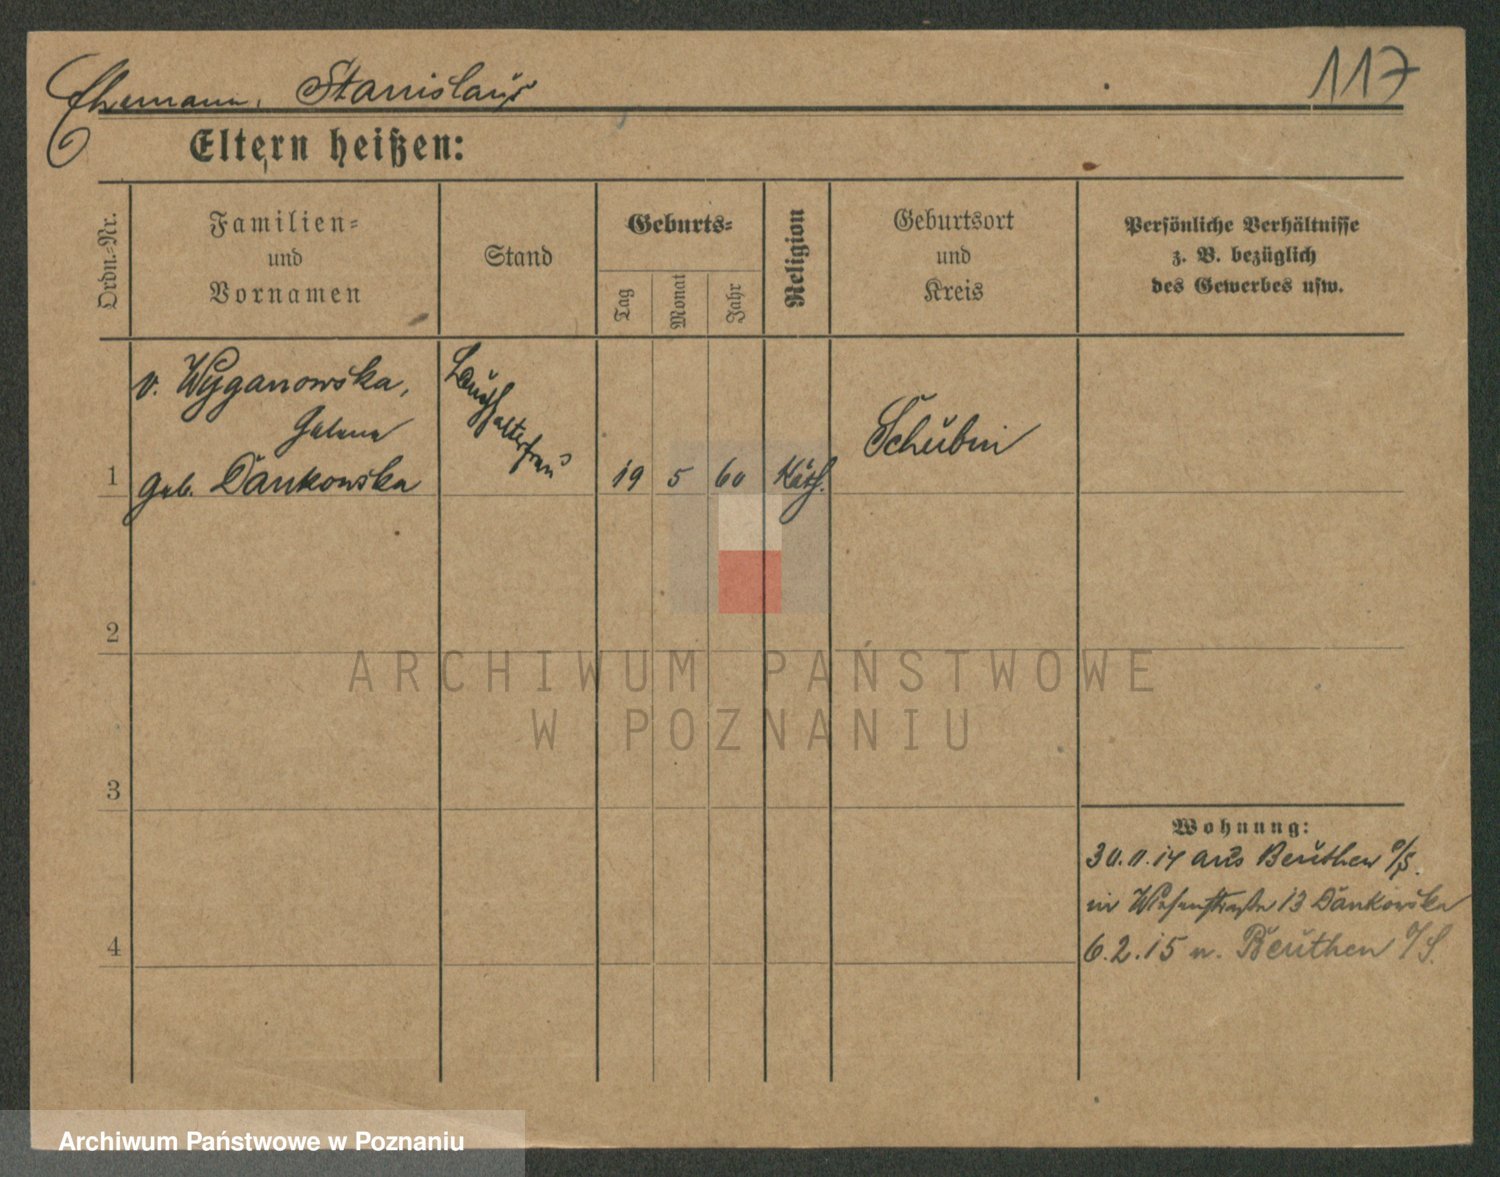 Ehemann, Stanislaus
117
Eltern heißen:
Ordn.-Nr.
Familien-
und
Vornamen
Stand
Geburts-
Tag
Monat
Jahr
Religion
Geburtsort
und
Kreis
Persönliche Verhältnisse
z. B. bezüglich
des Gewerbes usw.
1
v. Wyganowska,
Helene
geb. Dankowska
19
5
60
Kath.
Schubin
2
3
4
Wohnung:
30.11.14 aus Beuthen O/S.
in Wiesenstraße 13 Dankowska
6.2.15 n. Beuthen O/S.
ARCHIWUM PAŃSTWOWE
W POZNANIU
Archiwum Państwowe w Poznaniu